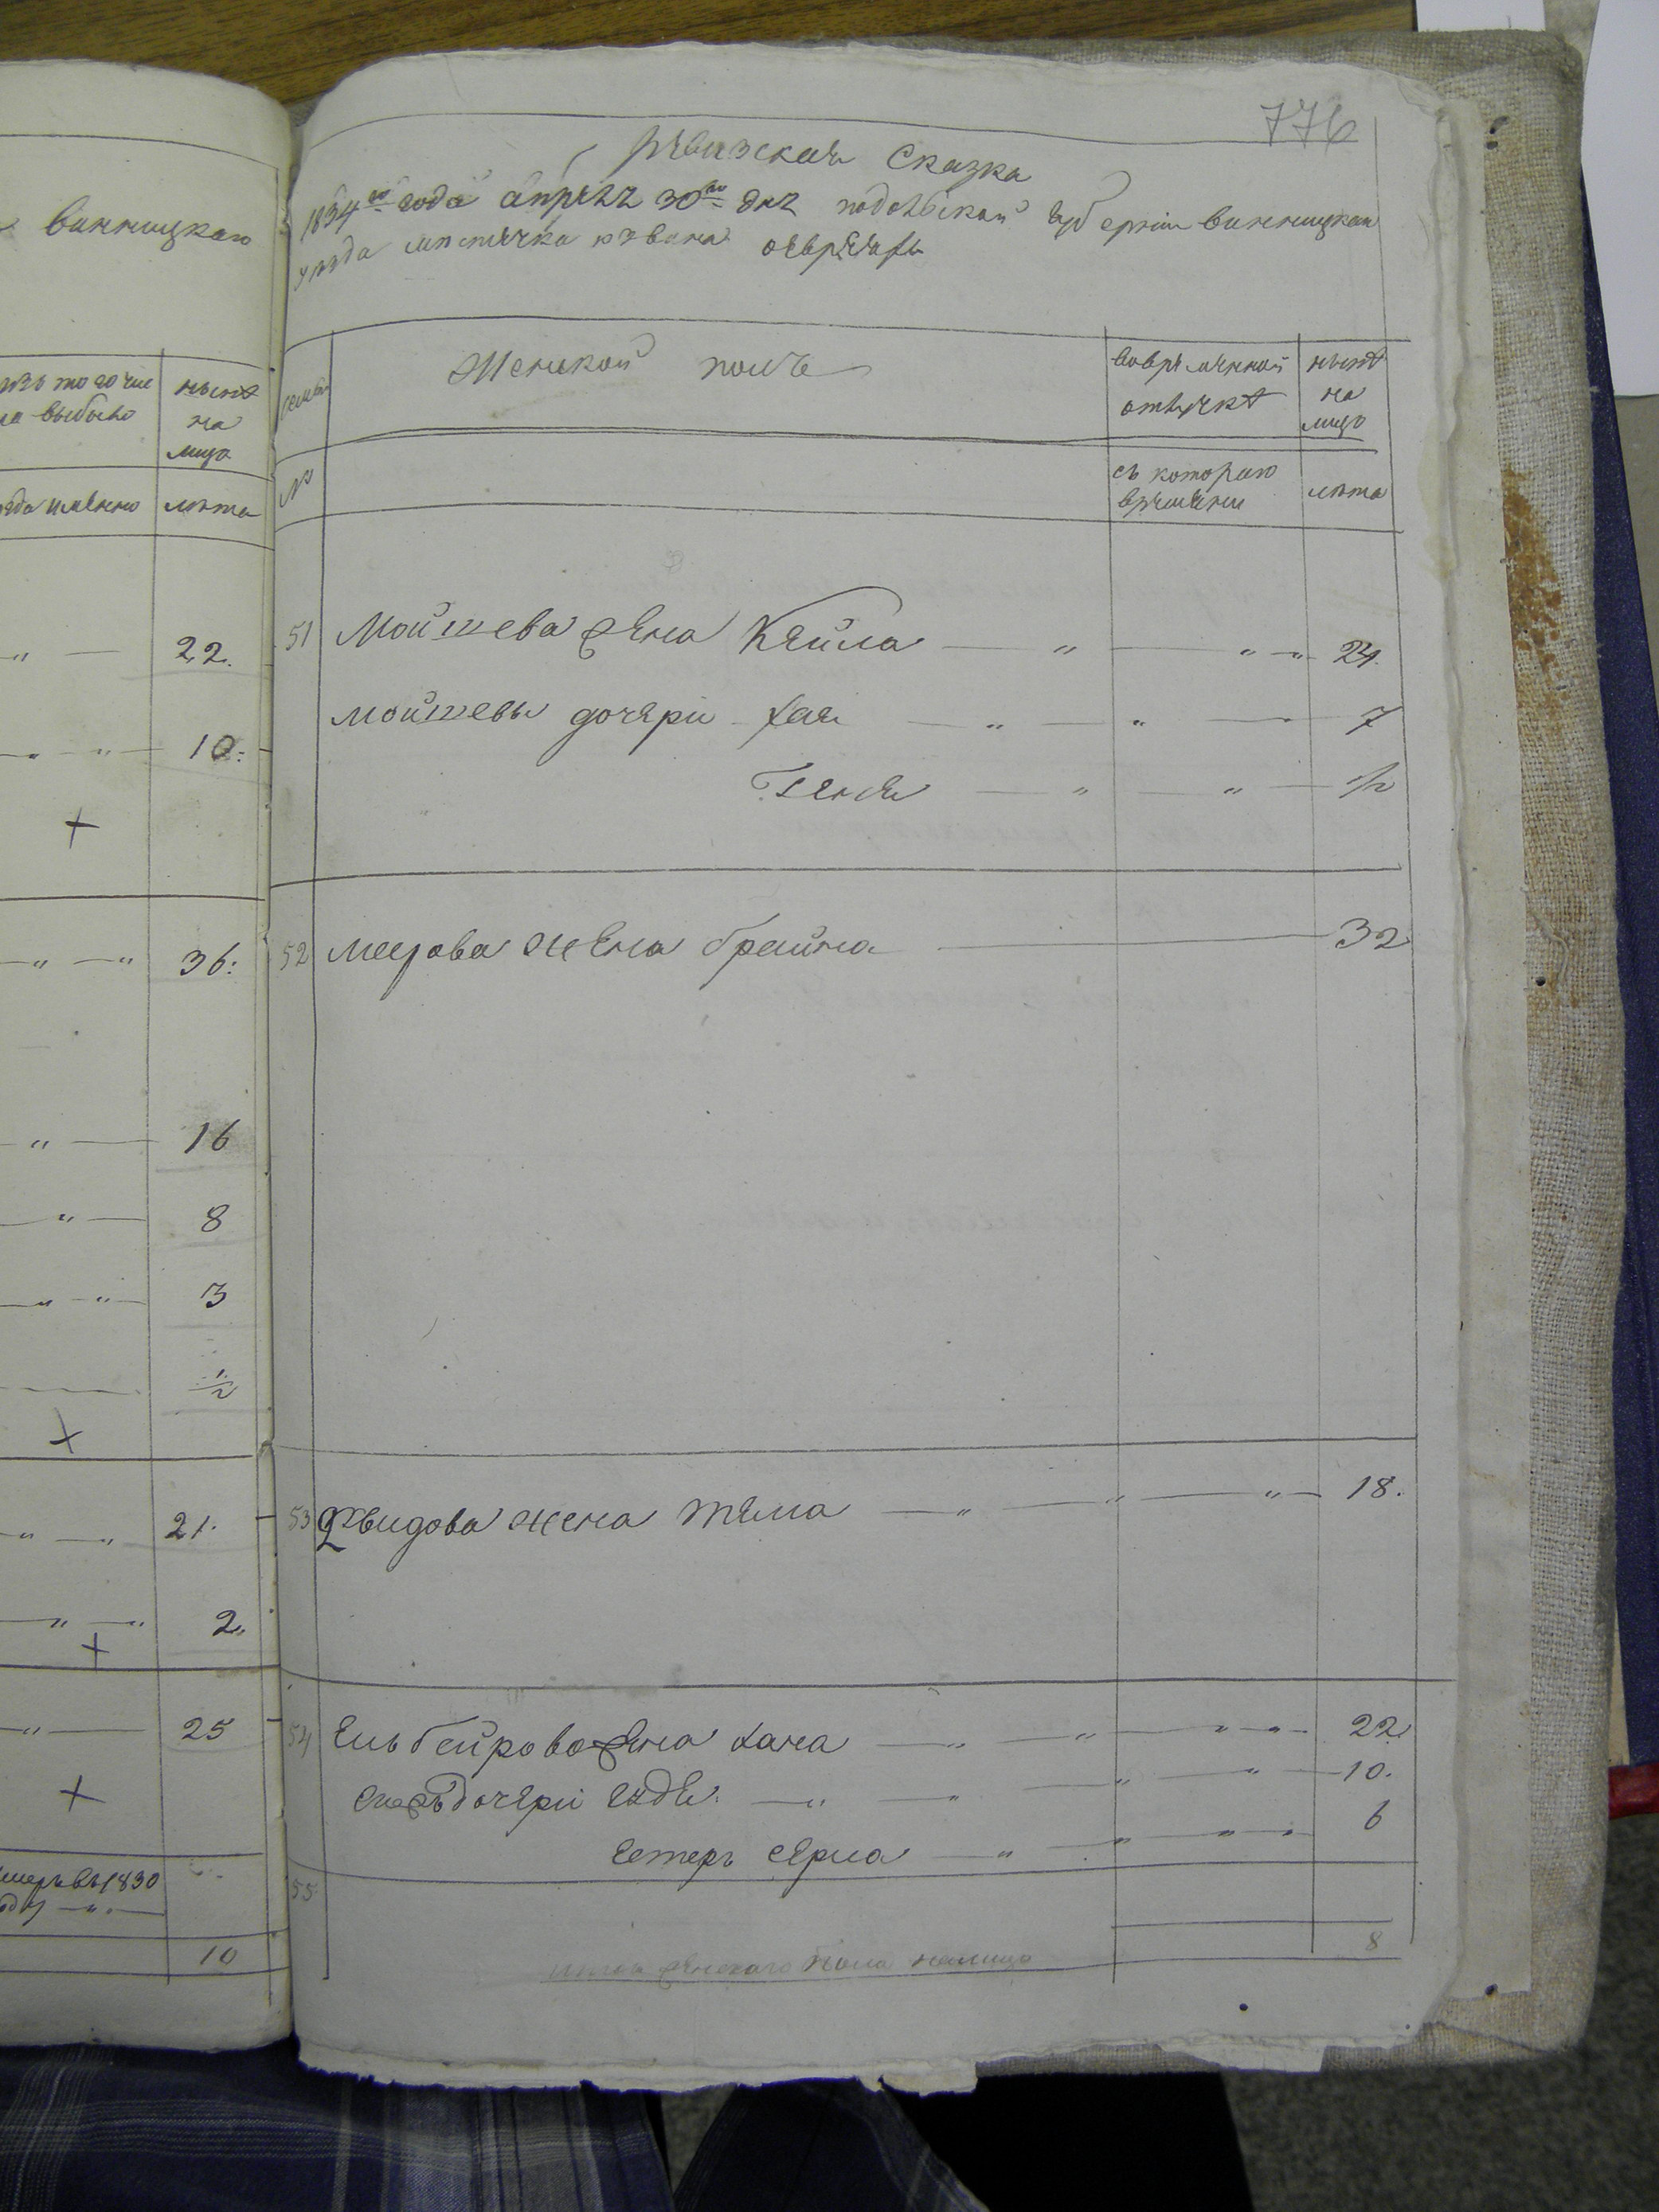 Винницкаго
изъ того чис
ла выбыло
нынѣ
на
лицо
лѣта
22.
10:
36:
16
8
3
1/2
21.
2
25
умеръ въ 1830
10
776
Ревизская Сказка
1834го года апреля 30го дня подольской губерніи винницкаго
уѣзда мѣстечка
Женской полъ
вовременной
отлучкѣ
нынѣ
на
лицо
№
съ котораго
времени
лѣта
51 Мойшева жена Кейла 24.
Мойшевы дочери Хая 7
Геня 1/2
52 Меерова жена Брайна 32
53 Двидова жена Тема 18.
54 Ель бейрова жена Хана 22
дочери 10.
Естеръ 6
55
итого женскаго пола налицо 8